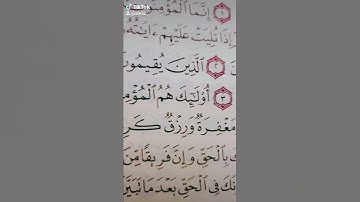 TikTok
۝ إِنَّمَا ٱلْمُؤْمِنُ
إِذَا تُلِيَتْ عَلَيْهِمْ ءَايَٰتُهُ
٢ ٱلَّذِينَ يُقِيمُونَ
٣ أُو۟لَٰٓئِكَ هُمُ ٱلْمُؤْمِ
مَغْفِرَةٌ وَرِزْقٌ كَرِ
بِٱلْحَقِّ وَإِنَّ فَرِيقًا مِّنَ
فِى ٱلْحَقِّ بَعْدَ مَا تَبَيَّنَ